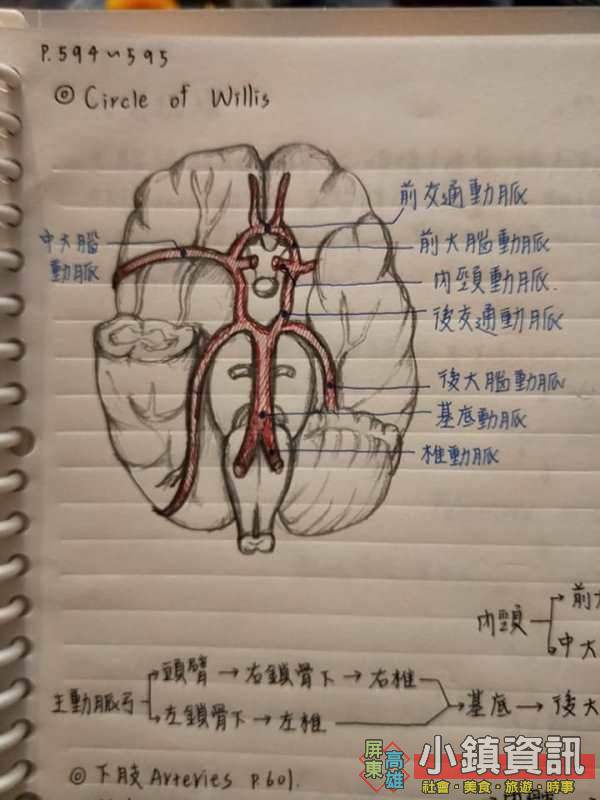 P.594~595
◎ Circle of Willis
前交通動脈
中大腦
動脈
前大腦動脈
內頸動脈
後交通動脈
後大腦動脈
基底動脈
椎動脈
內頸
前大
中大
主動脈弓
頭臂 → 右鎖骨下 → 右椎
左鎖骨下 → 左椎
基底 → 後大
◎ 下肢 Arteries p.601.
屏東
高雄
小鎮資訊
社會·美食·旅遊·時事